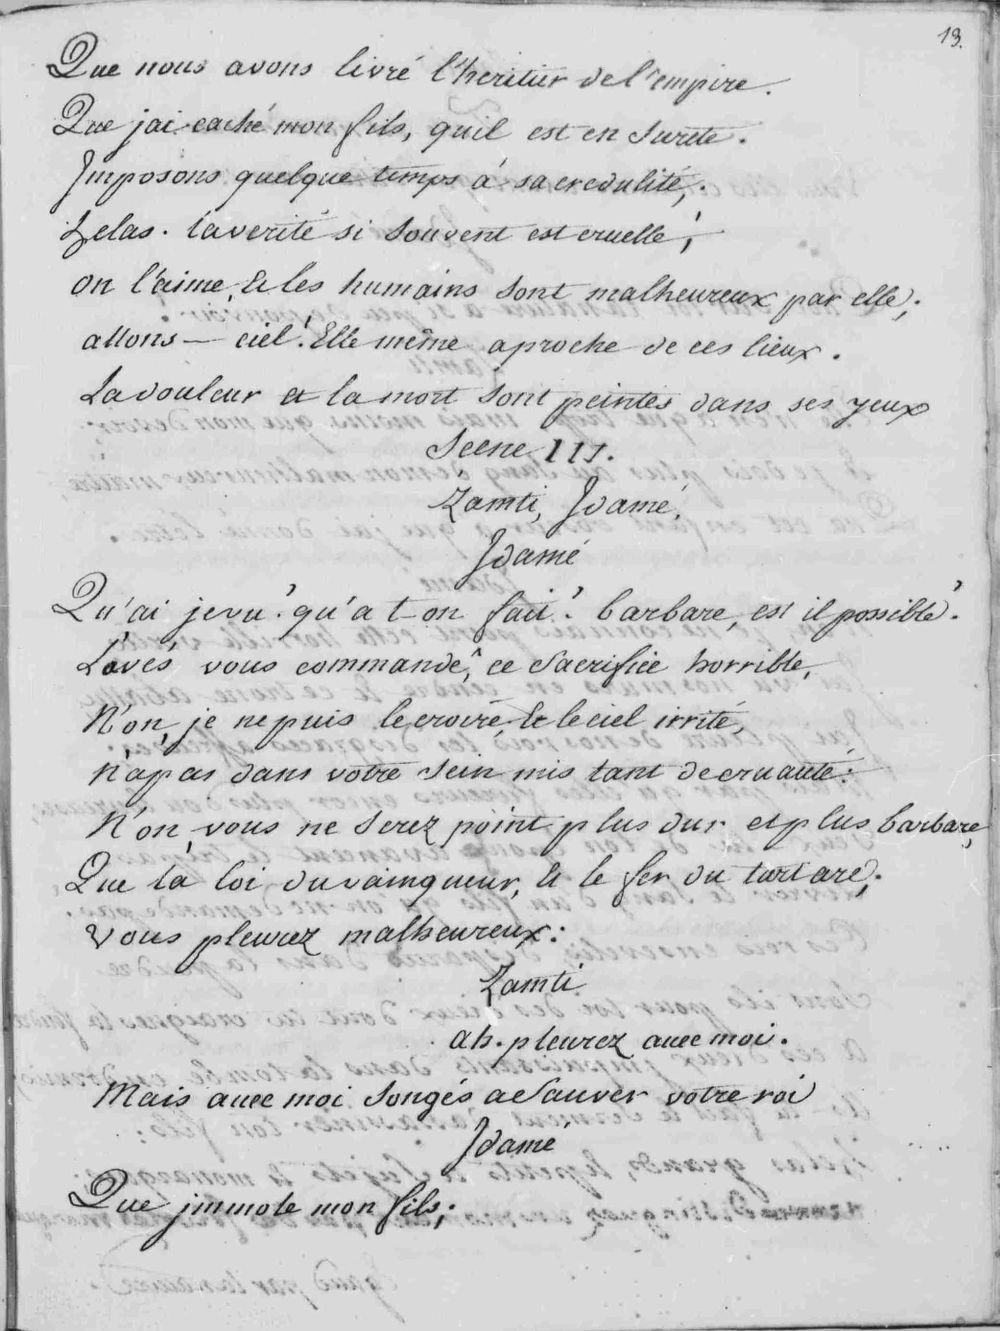 13.
Que nous avons livré l'heritier de l'empire.
Que jai caché mon fils, quil est en Sureté.
Jmposons quelque temps á sa credulité,.
helas. la verité si Souvent est cruelle;
on l'aime, & les humains Sont malheureux par elle;
allons — ciel! Elle même aproche de ces lieux.
La douleur et la mort Sont peintes dans ses yeux
Scene III.
Zamti, Jdamé,
Jdamé
Qu'ai je vu? qu'a t on fait? barbare, est il possible?
L'avés vous commandé, ce Sacrifice horrible,
N'on, je ne puis le croire, & le ciel irrité,
n'apas dans votre Sein mis tant de cruauté:
N'on, vous ne Serez point plus dur et plus barbare,
Que la loi du vainqueur, & le fer du tartare,.
Vous pleurez malheureux:
Zamti
ah. pleurez avec moi.
Mais avec moi Songés a Sauver votre roi
Jdamé
Que jmmole mon fils;